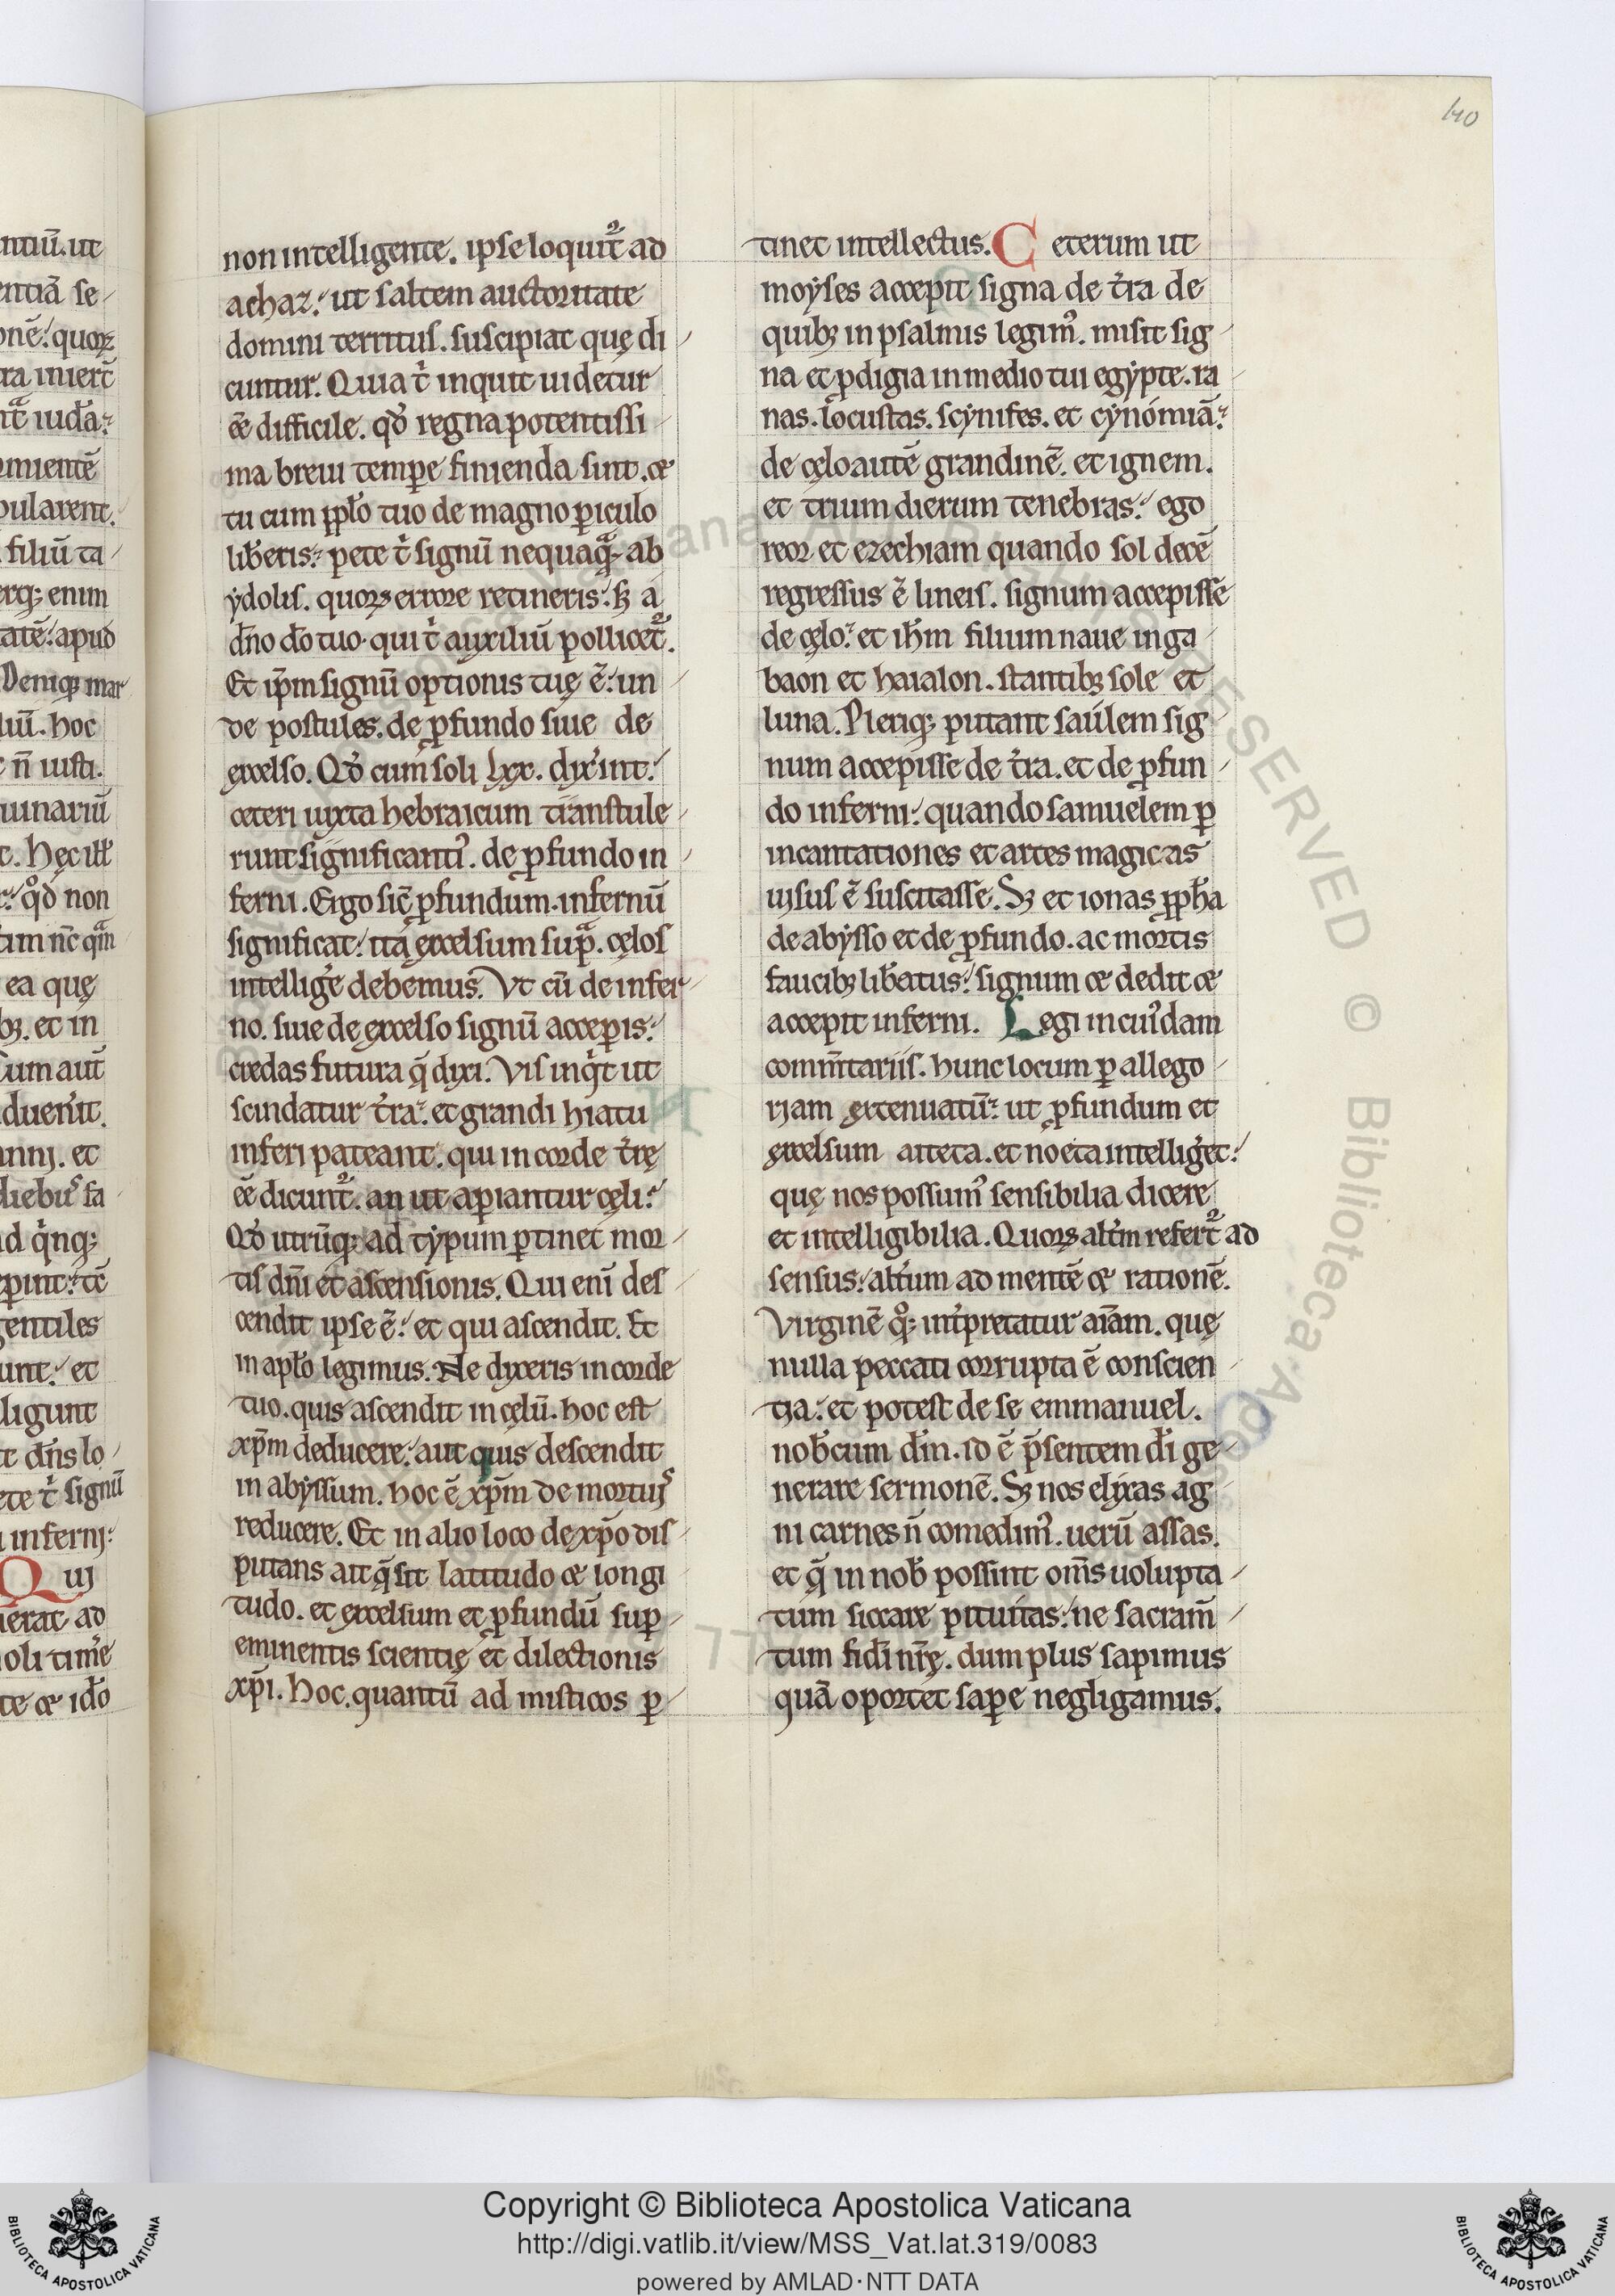 140
non intelligente. ipse loquit᷑ ad
achaz: ut saltem auctoritate
domini territus. suscipiat quę di
cuntur. Quia t̓ inquit uidetur
ēē difficile. qd̓ regna potentissi
ma breui tempe finienda sunt. &
tu cum pplo tuo de magno piculo
lib̓eris: pete t̓ signū nequaquā ab
ydolis. quoꝝ errore retineris: sꝫ a
dn̄o dō tuo. qui t̓ auxiliū pollicet᷑.
Et ip̄m signū optionis tuę ē: un
de postules. de ꝓfundo siue de
excelso. Qd̓ cum soli lxx. dixint:
ceteri iuxta hebraicum transtule
runt significanti᷒. de ꝓfundo in
ferni. Ergo sic̄ ꝓfundum. infernū
significat: ita excelsum sup̄. cęlos
intellige̓ debemus. Vt cū de infer
no. siue de excelso signū acceꝑis:
credas futura q̄ dixi. Vis inqͥt ut
scindatur t̓ra: et grandi hiatu
inferi pateant. qui in corde t̓rę
ēē dicunt᷑. an ut aꝑiantur cęli:
Qd̓ utrūqꝫ ad typum ꝑtinet mor
tis dn̄i et ascensionis. Qui eni des
cendit ipse ē: et qui ascendit. Et
in aplo legimus. Ne dixeris in corde
tuo. quis ascendit in cęlū. hoc est
xp̄m deducere: aut quis descendit
in abyssum. hoc ē xp̄m de mortuis
reducere. Et in alio loco de xp̄o dis
putans ait q̄ sit latitudo & longi
tudo. et excelsum et ꝓfundū suꝑ
eminentis scientię et dilectionis
xp̄i. Hoc. quantū ad misticos ꝑ
tinet intellectus. Ceterum ut
moyses accepit signa de t̓ra de
quibꝫ in psalmis legim᷒. misit sig
na et ꝓdigia in medio tui egypte. ra
nas. locustas. scynifes. et cynomiā:
de cęlo autē grandinē. et ignem.
et trium dierum tenebras: ego
reor et ezechiam quando sol decē
regressus ē lineis. signum accepisse
de cęlo: et ih̄m filium naue in ga
baon et haialon. stantibꝫ sole et
luna. Pleriqꝫ putant saulem sig
num accepisse de t̓ra. et de ꝓfun
do inferni: quando samuelem ꝑ
incantationes et artes magicas
uisus ē suscitasse. Sꝫ et ionas ꝓpha
de abysso et de ꝓfundo. ac mortis
faucibꝫ lib̓atus: signum & dedit &
accepit inferni. Legi in cui᷒dam
comm̄tariis. hunc locum ꝑ allego
riam extenuatū: ut ꝓfundum et
excelsum aiteta. et noeta intelliget:
quę nos possum᷒ sensibilia dicere
et intelligibilia. Quoꝝ alt̓m refert᷑ ad
sensus: alt̓um ad mentē & rationē.
Virginē qͦqꝫ int̓pretatur aīam. quę
nulla peccati corrupta ē conscien
tia: et potest de se emmanuel.
nob̄cum dm̄. id ē p̄sentem di̓ ge
nerare sermonē. Sꝫ nos elixas ag
ni carnes n̄ comedim᷒. uerū assas.
et q̄ in nob̄ possint oms̄ uolupta
tum siccare pituitas: ne sacram̄
tum fidi̓ nr̄ę. dum plus sapimus
quā oportet saꝑe negligamus.
Copyright © Biblioteca Apostolica Vaticana
http://digi.vatlib.it/view/MSS_Vat.lat.319/0083
powered by AMLAD·NTT DATA
BIBLIOTECA APOSTOLICA VATICANA
BIBLIOTECA APOSTOLICA VATICANA